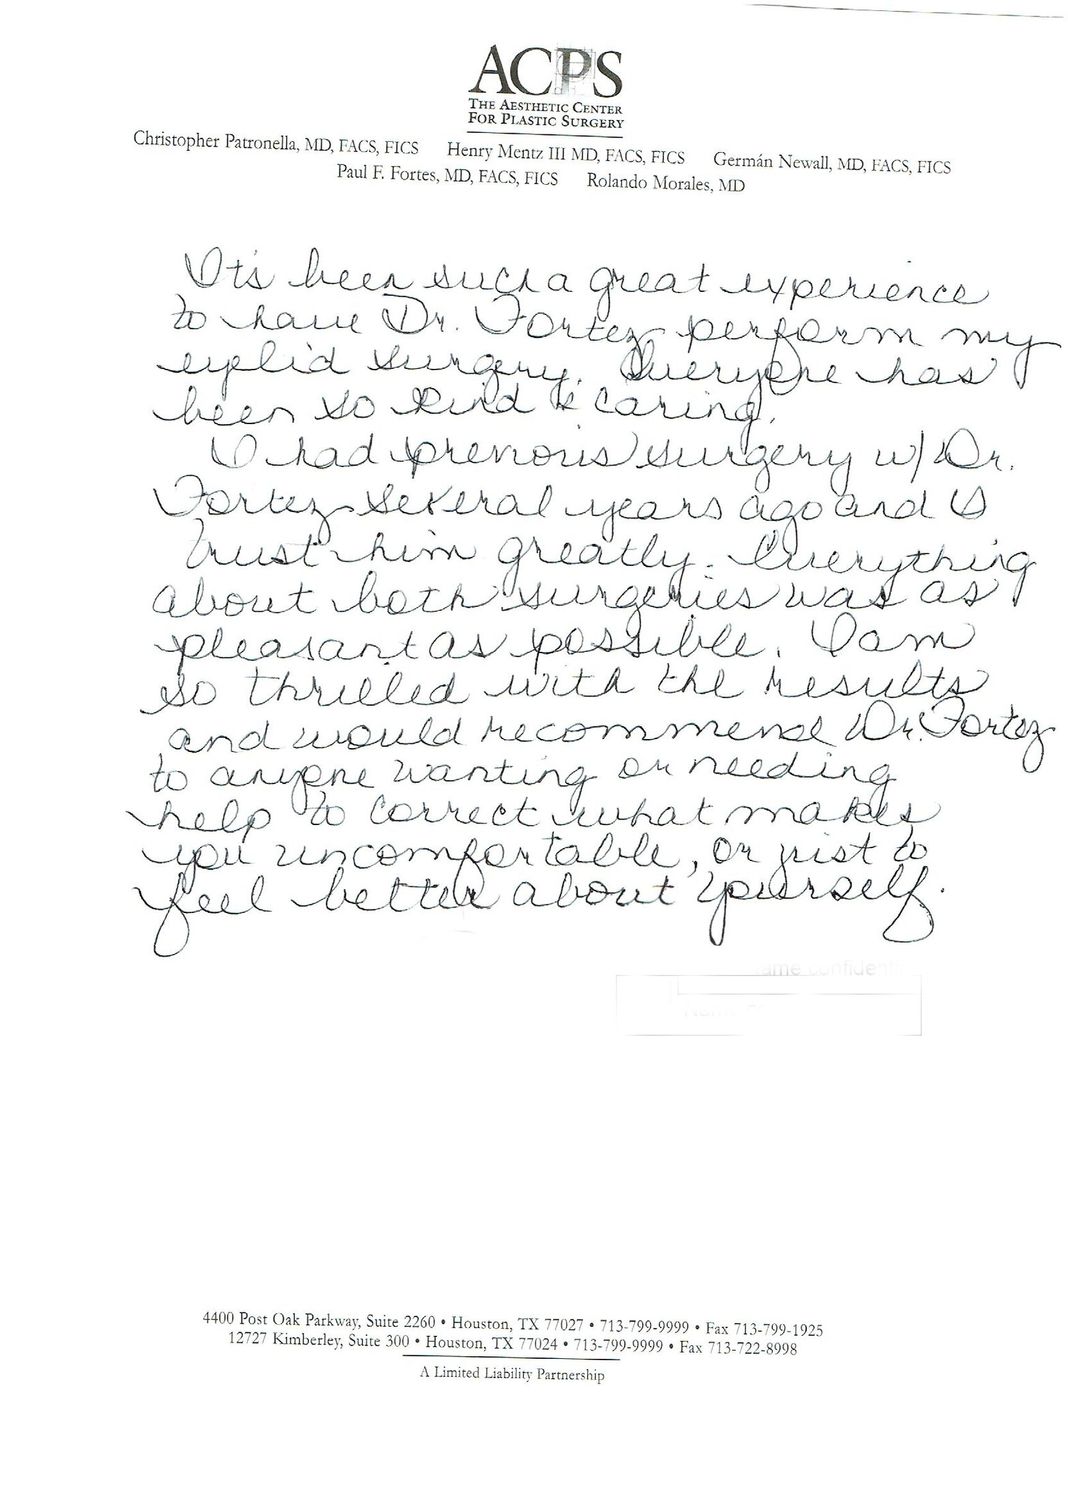 ACPS
THE AESTHETIC CENTER
FOR PLASTIC SURGERY
Christopher Patronella, MD, FACS, FICS Henry Mentz III MD, FACS, FICS Germán Newall, MD, FACS, FICS
Paul F. Fortes, MD, FACS, FICS Rolando Morales, MD
It's been such a great experience
to have Dr. Fortez perform my
eyelid surgery. Everyone has
been so kind & caring.
I had previous surgery w/ Dr.
Fortez several years ago and I
trust him greatly. Everything
about both surgeries was as
pleasant as possible. I am
so thrilled with the results
and would recommend Dr. Fortez
to anyone wanting or needing
help to correct what makes
you uncomfortable, or just to
feel better about yourself.
4400 Post Oak Parkway, Suite 2260 • Houston, TX 77027 • 713-799-9999 • Fax 713-799-1925
12727 Kimberley, Suite 300 • Houston, TX 77024 • 713-799-9999 • Fax 713-722-8998
A Limited Liability Partnership